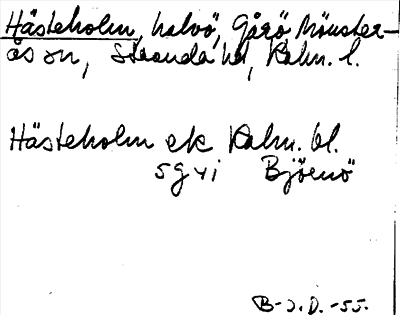 Hästeholm, halvö, Gårö, Mönster-
ås sn, Stranda hd, Kalm. l.
Hästeholm ek Kalm. bl.
5g yi Björnö
B-J.D.-55.